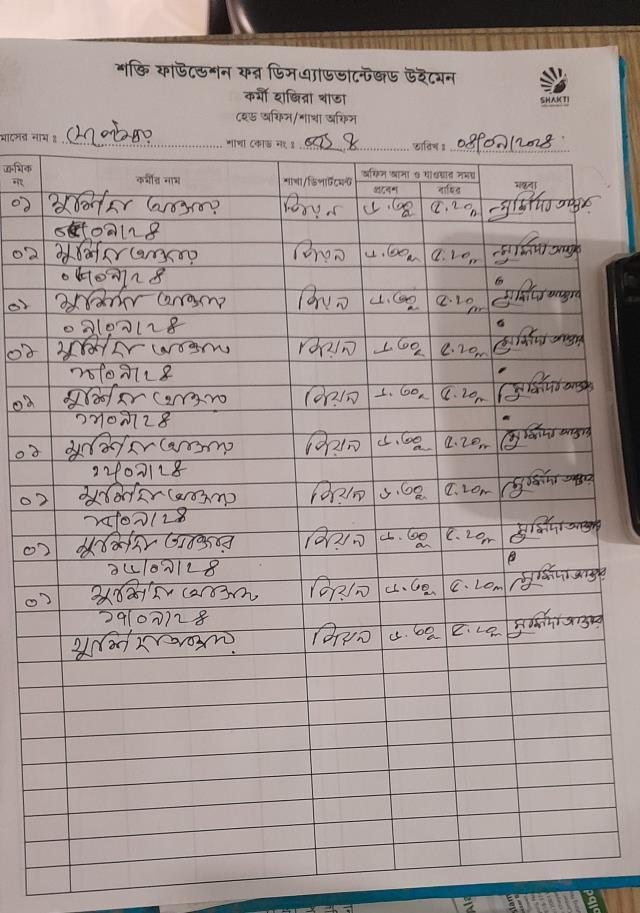 শক্তি ফাউন্ডেশন ফর ডিসএ্যাডভান্টেজড উইমেন
SHAKTI
কর্মী হাজিরা খাতা
হেড অফিস/শাখা অফিস
মাসের নাম : সেপ্টেম্বর শাখা কোড নং : তারিখ : ০৪/০৯/২০২৪
ক্রমিক নং কর্মীর নাম শাখা/ডিপার্টমেন্ট অফিস আসা ও যাওয়ার সময় মন্তব্য
প্রবেশ বাহির
০১ মুর্শিদা আক্তার পিয়ন ৮.৩০ ৫.২০ মুর্শিদা আক্তার
০৫/০৯/২৪
০১ মুর্শিদা আক্তার পিয়ন ৮.৩০ ৫.২০ মুর্শিদা আক্তার
/০৯/২৪
০১ মুর্শিদা আক্তার পিয়ন ৮.৩০ ৫.২০ মুর্শিদা আক্তার
০৯/০৯/২৪
০১ মুর্শিদা আক্তার পিয়ন ৮.৩০ ৫.২০ মুর্শিদা আক্তার
/০৯/২৪
০১ মুর্শিদা আক্তার পিয়ন ৮.৩০ ৫.২০ মুর্শিদা আক্তার
১১/০৯/২৪
০১ মুর্শিদা আক্তার পিয়ন ৮.৩০ ৫.২০ মুর্শিদা আক্তার
১২/০৯/২৪
০১ মুর্শিদা আক্তার পিয়ন ৮.৩০ ৫.২০ মুর্শিদা আক্তার
/০৯/২৪
০১ মুর্শিদা আক্তার পিয়ন ৮.৩০ ৫.২০ মুর্শিদা আক্তার
১৬/০৯/২৪
০১ মুর্শিদা আক্তার পিয়ন ৮.৩০ ৫.২০ মুর্শিদা আক্তার
১৭/০৯/২৪
মুর্শিদা আক্তার পিয়ন ৮.৩০ ৫.২০ মুর্শিদা আক্তার